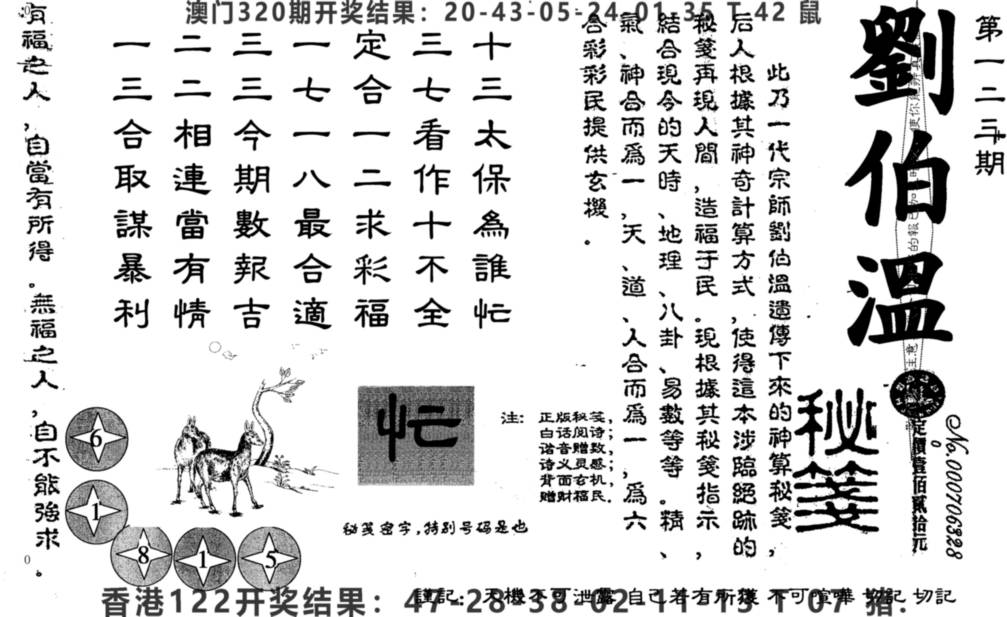 澳门320期开奖结果：20-43-05-24-01-35 T 42 鼠
第一二三期
劉伯溫
秘箋
定價壹佰貳拾元
No.000706328
此乃一代宗師劉伯溫遺傳下來的神算秘箋，
后人根據其神奇計算方式，使得這本涉臨絕跡的
秘箋再現人間，造福于民。現根據其秘箋指示，
結合現今的天時、地理、八卦、易數等等。精、
氣、神合而為一，天、道、人合而為一，為六
合彩彩民提供玄機。
十三太保為誰忙
三七看作十不全
定合一二求彩福
一七一八最合適
三三今期數報吉
二二相連當有情
一三合取謀暴利
有福之人，自當有所得。無福之人，自不能強求。
忙
注：正版秘笺，
白话阅诗；
谐音赠数，
诗义灵感；
背面玄机，
赠财福民.
秘笺密字,特别号码是也
6
1
8
1
5
謹記：天機不可泄露 自己若有所獲 不可喧嘩 切記 切記
香港122开奖结果：47-28-38-02-11-13 T 07 猪.